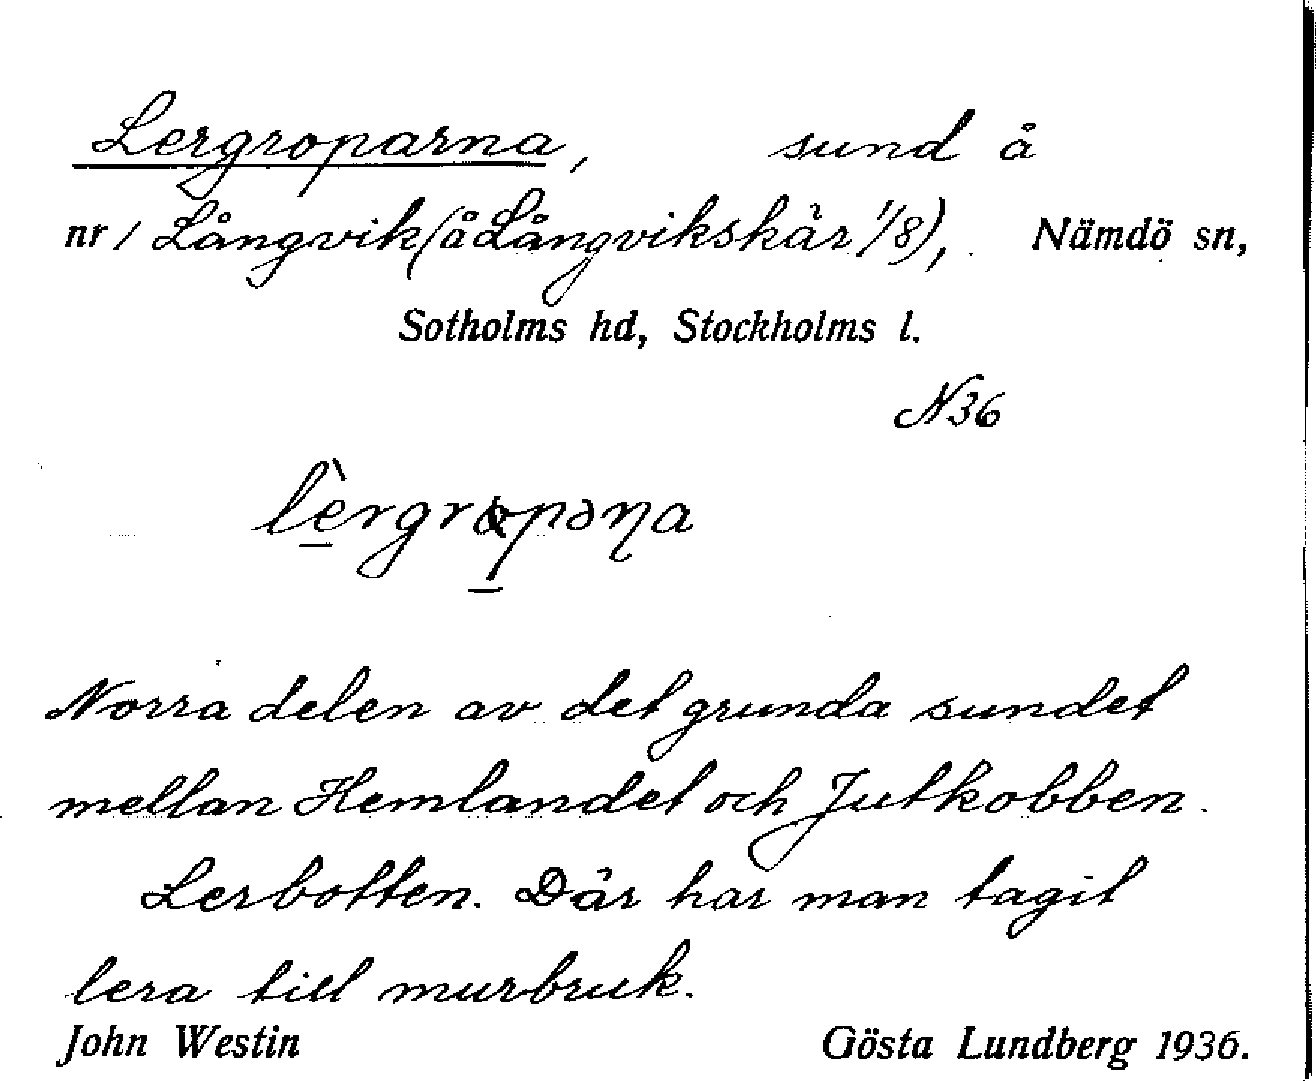 Lergroparna, sund å
nr 1 Långvik (å Långvikskär 1/8), Nämdö sn,
Sotholms hd, Stockholms l.
N36
lèrgropəɳa
Norra delen av det grunda sundet
mellan Hemlandet och Jutkobben.
Lerbotten. Där har man tagit
lera till murbruk.
John Westin Gösta Lundberg 1936.